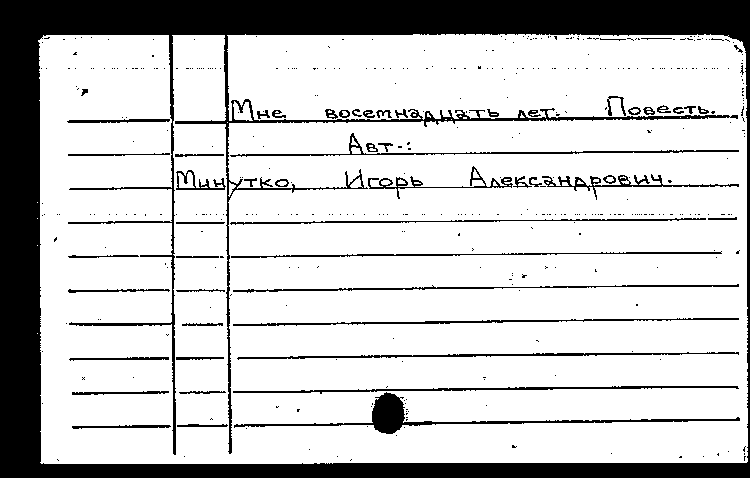 Мне восемнадцать лет. Повесть.
Авт.:
Минутко, Игорь Александрович.